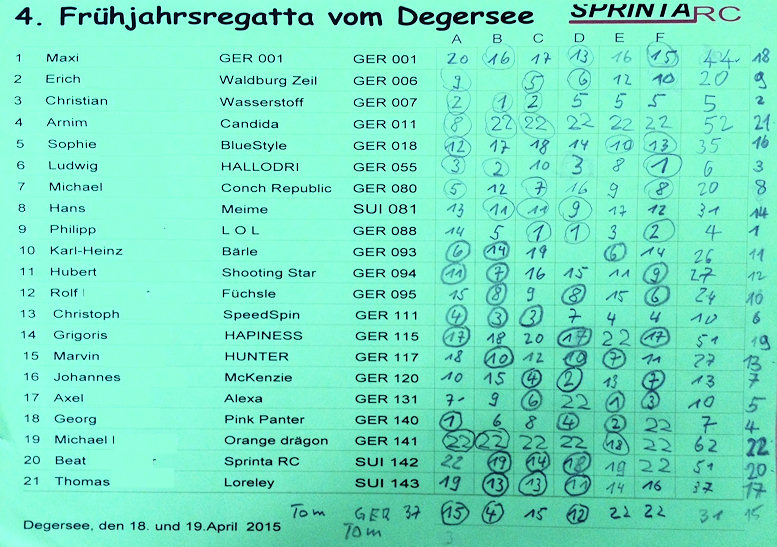 4. Frühjahrsregatta vom Degersee SPRINTA RC
A B C D E F
1 Maxi GER 001 GER 001 20 16 17 13 16 15 44 18
2 Erich Waldburg Zeil GER 006 9 5 6 12 10 20 9
3 Christian Wasserstoff GER 007 2 1 2 5 5 5 5 2
4 Arnim Candida GER 011 8 22 22 22 22 22 52 21
5 Sophie BlueStyle GER 018 12 17 18 14 10 13 35 16
6 Ludwig HALLODRI GER 055 3 2 10 3 8 1 6 3
7 Michael Conch Republic GER 080 5 12 7 16 9 8 20 8
8 Hans Meime SUI 081 13 11 11 9 17 12 31 14
9 Philipp L O L GER 088 14 5 1 1 3 2 4 1
10 Karl-Heinz Bärle GER 093 6 14 19 6 14 26 11
11 Hubert Shooting Star GER 094 11 7 16 15 11 9 27 12
12 Rolf Füchsle GER 095 15 8 9 8 15 6 24 10
13 Christoph SpeedSpin GER 111 4 3 3 7 4 4 10 6
14 Grigoris HAPINESS GER 115 17 18 20 17 22 17 51 19
15 Marvin HUNTER GER 117 18 10 12 10 7 11 27 13
16 Johannes McKenzie GER 120 10 15 4 2 13 7 13 7
17 Axel Alexa GER 131 7 9 6 22 1 3 10 5
18 Georg Pink Panter GER 140 1 6 8 4 2 22 7 4
19 Michael Orange drägon GER 141 22 22 22 22 18 22 62 22
20 Beat Sprinta RC SUI 142 22 19 14 18 19 22 51 20
21 Thomas Loreley SUI 143 19 13 13 11 14 16 37 17
Tom GER 37 15 4 15 12 22 22 31 15
Degersee, den 18. und 19.April 2015 Tom